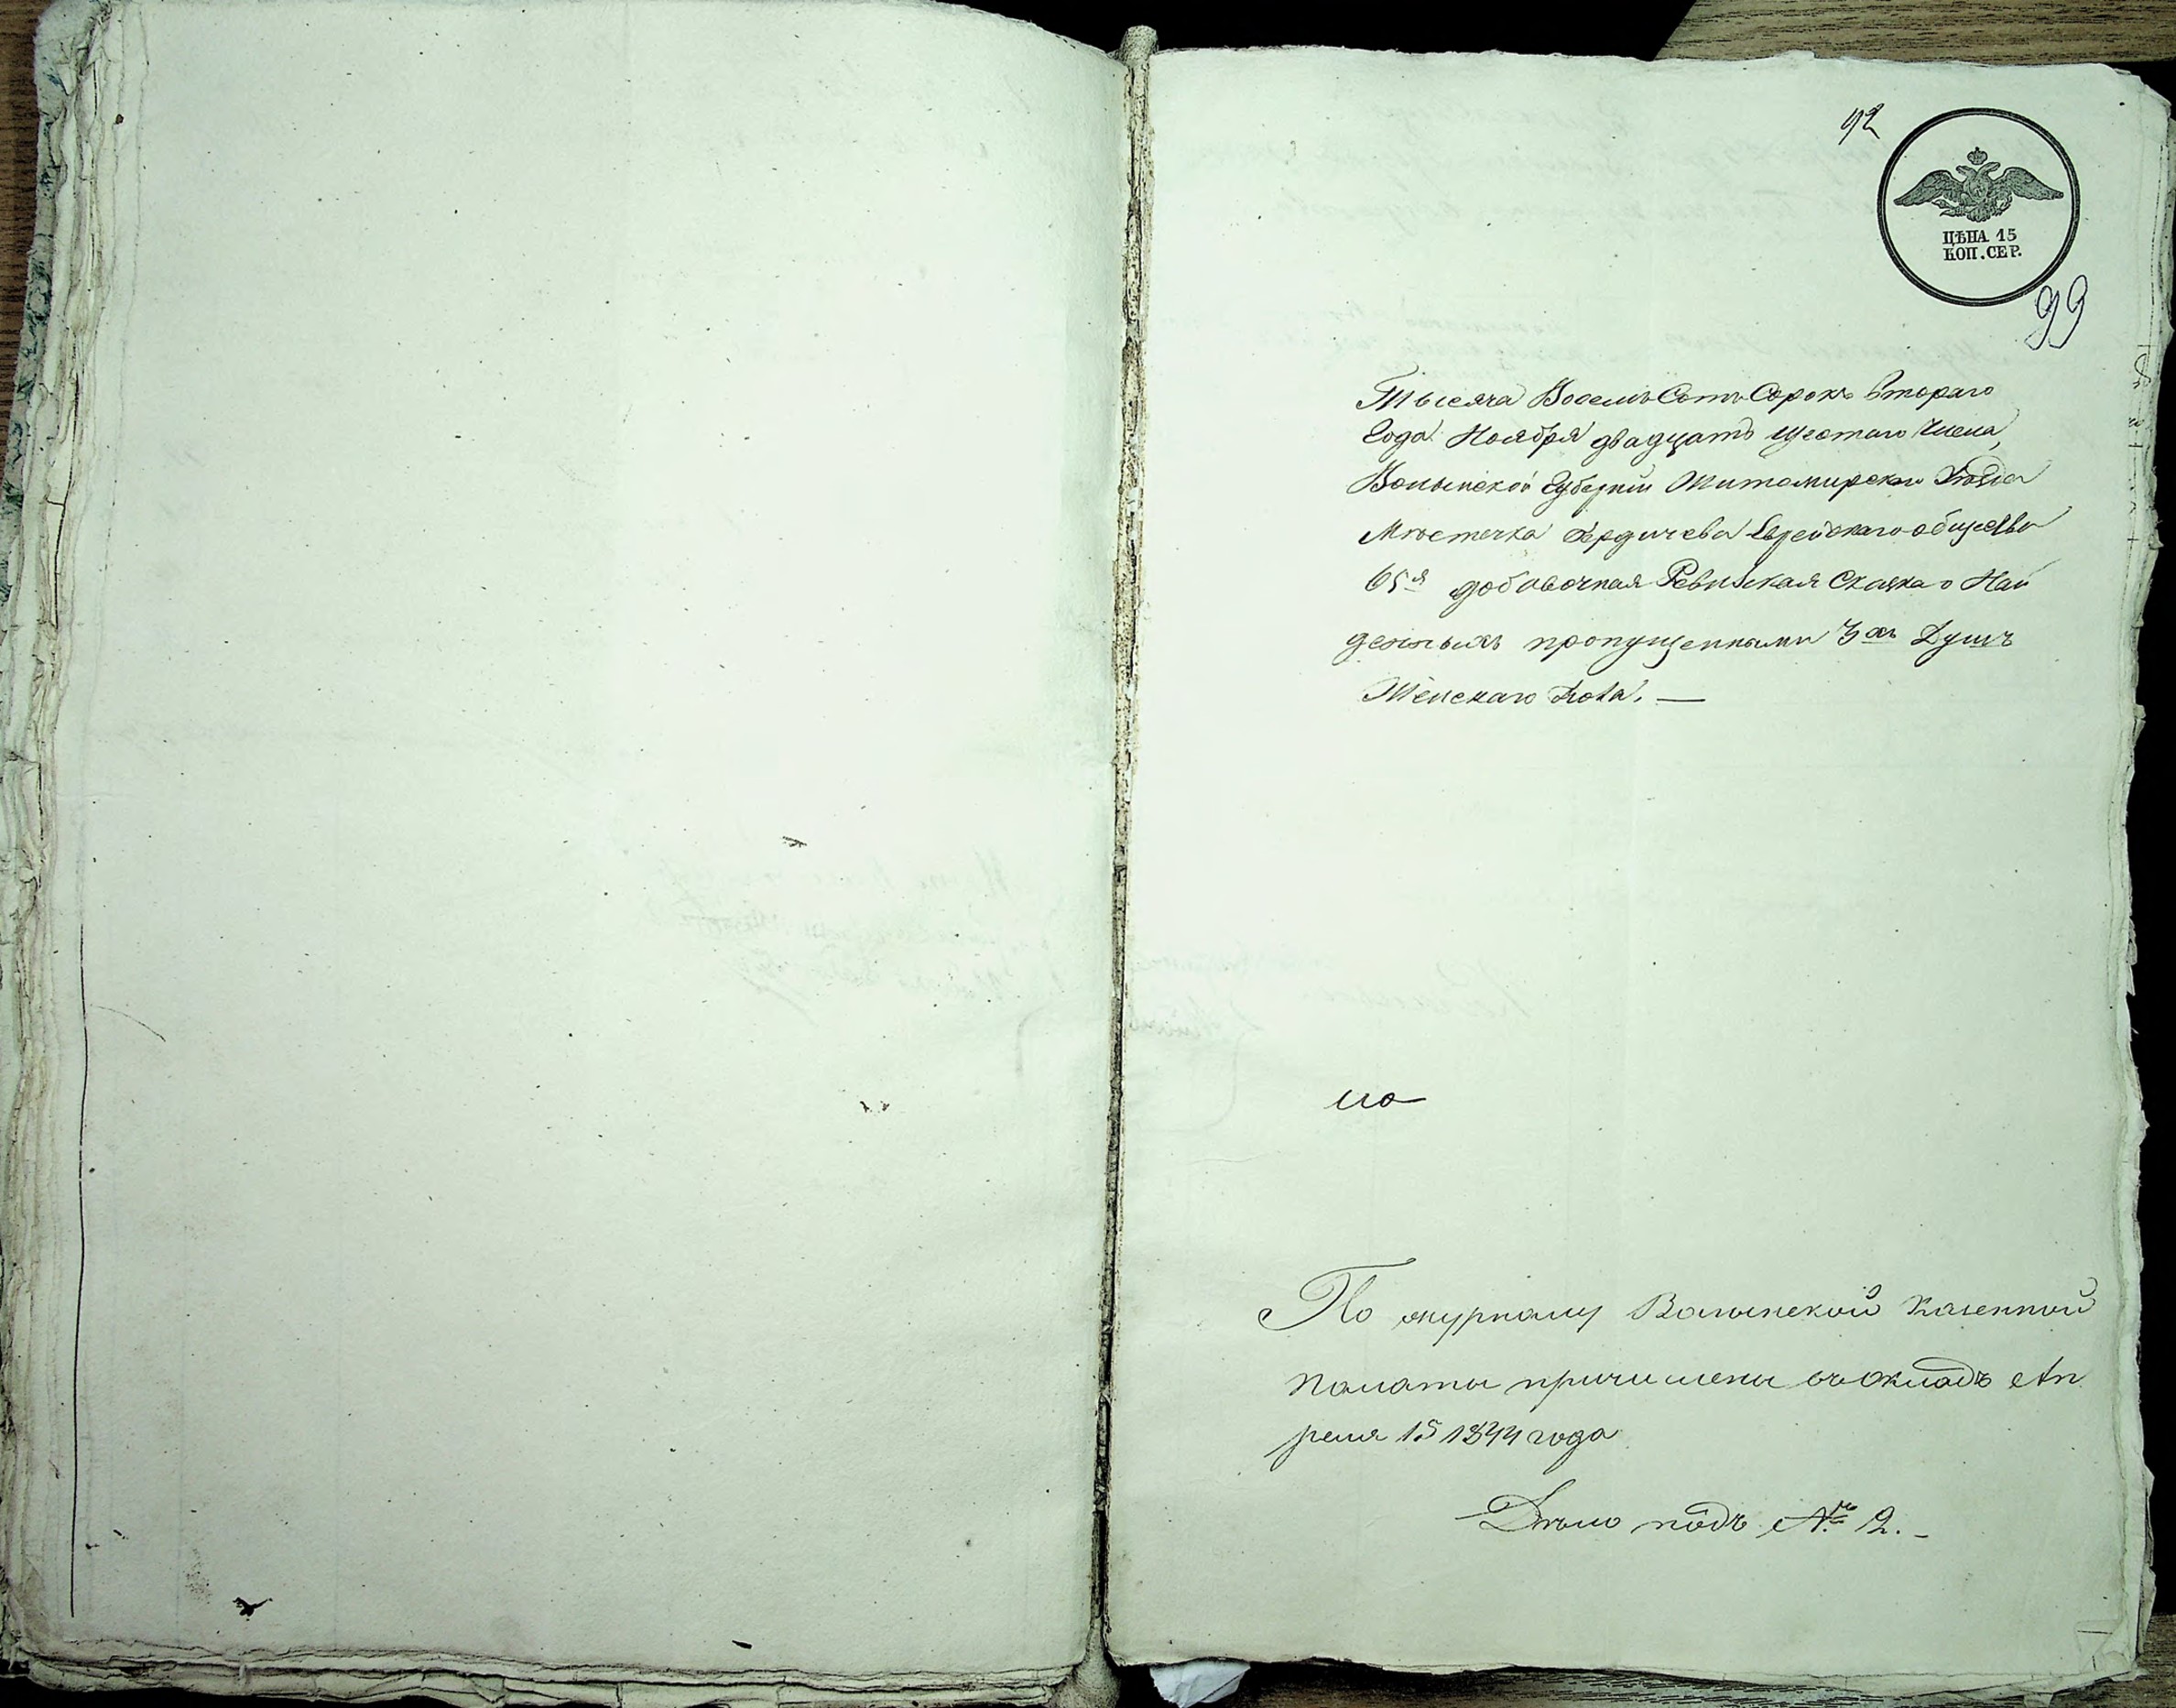 92
ЦѢНА 15
КОП. СЕР.
99
Тысяча Восемь Сотъ Сорокъ втораго
Года Ноября двадцать шестаго числа,
Волынской Губерніи Житомирскаго Уѣзда
Мѣстечка Бердичева Еврейскаго общества
65я добавочная Ревизская Сказка о Най
денныхъ пропущенными 3хъ Душъ
Женскаго Пола. —
По журналу Волынской Казенной
Палаты причислены въ окладъ Ап
реля 15 1844 года
Дѣло подъ № 12. -